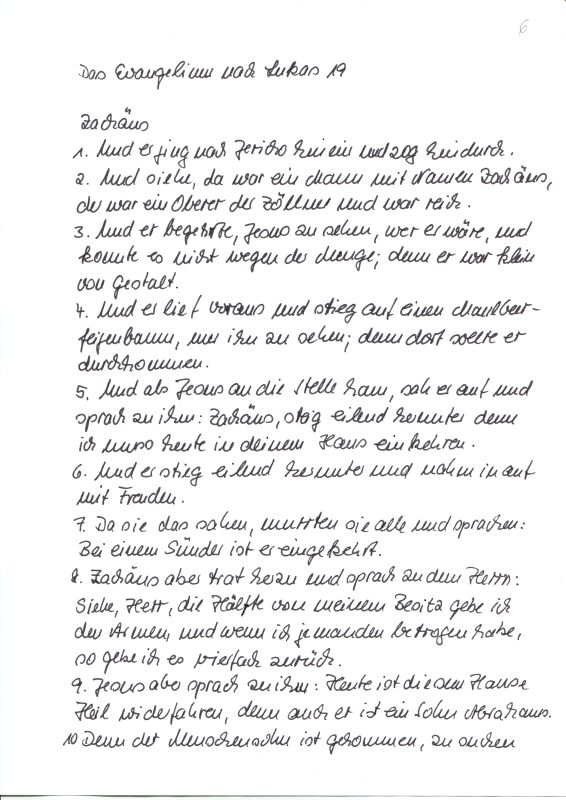 6
Das Evangelium nach Lukas 19
Zachäus
1. Und er ging nach Jericho hinein und zog hindurch.
2. Und siehe, da war ein Mann mit Namen Zachäus,
der war ein Oberer der Zöllner und war reich.
3. Und er begehrte, Jesus zu sehen, wer er wäre, und
konnte es nicht wegen der Menge; denn er war klein
von Gestalt.
4. Und er lief voraus und stieg auf einen Maulbeer-
feigenbaum, um ihn zu sehen; denn dort sollte er
durchkommen.
5. Und als Jesus an die Stelle kam, sah er auf und
sprach zu ihm: Zachäus, steig eilend herunter denn
ich muss heute in deinem Haus einkehren.
6. Und er stieg eilend herunter und nahm in auf
mit Freuden.
7. Da sie das sahen, murrten sie alle und sprachen:
Bei einem Sünder ist er eingekehrt.
8. Zachäus aber trat heran und sprach zu dem Herrn:
Siehe, Herr, die Hälfte von meinem Besitz gebe ich
den Armen, und wenn ich jemanden betrogen habe,
so gebe ich es vierfach zurück.
9. Jesus aber sprach zu ihm: Heute ist diesem Hause
Heil widerfahren, denn auch er ist ein Sohn Abrahams.
10 Denn der Menschensohn ist gekommen, zu suchen